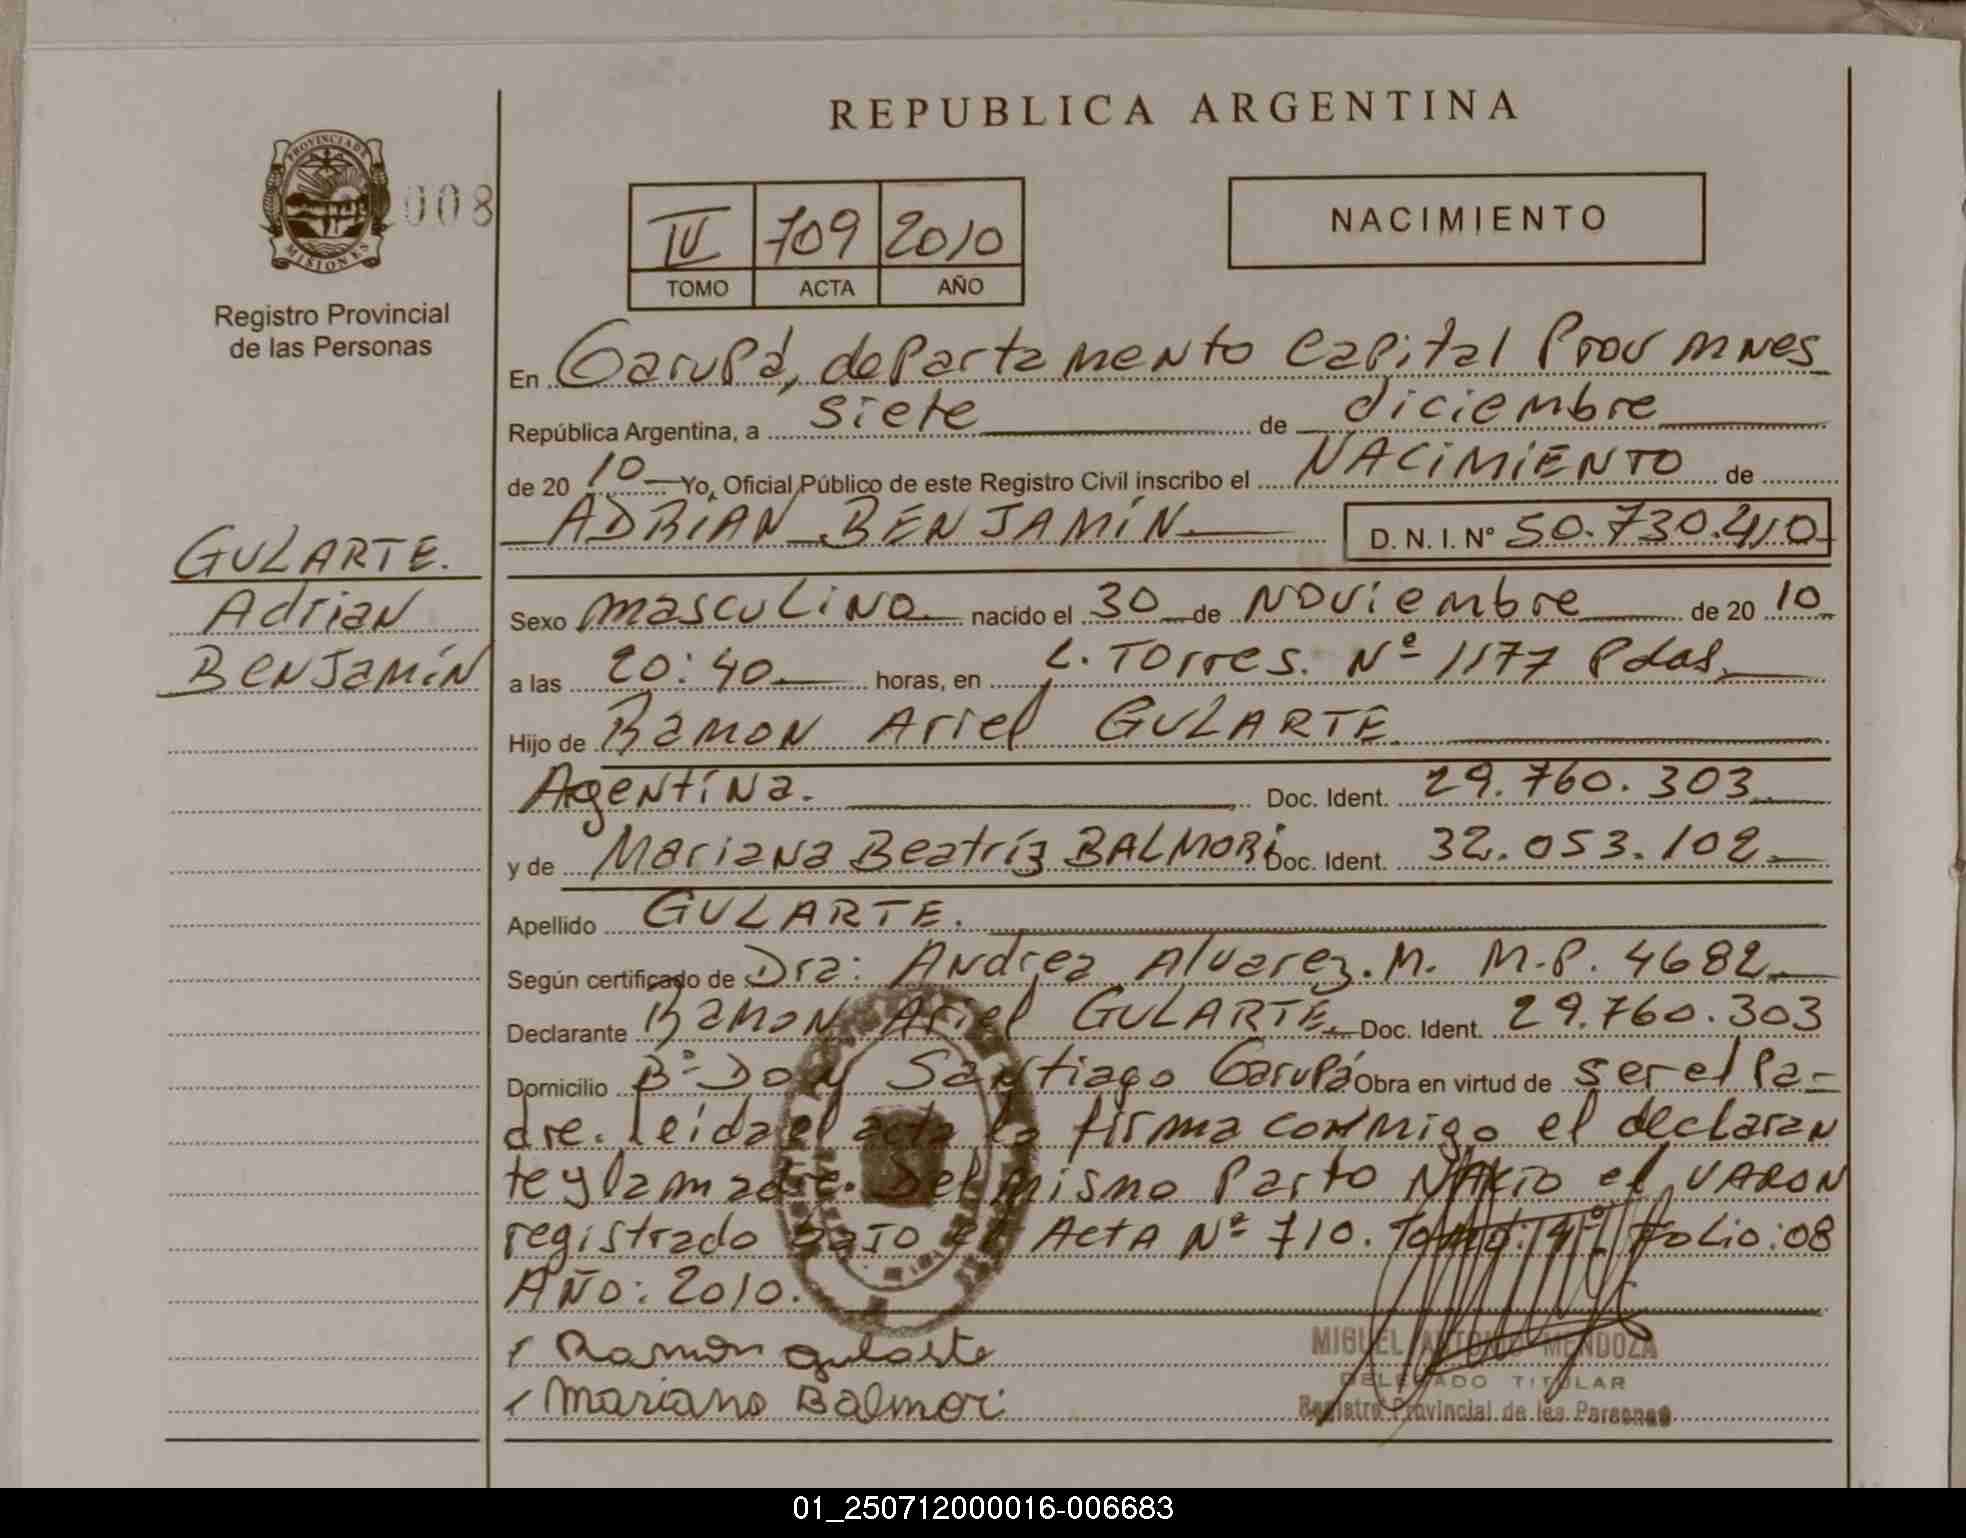 REPUBLICA ARGENTINA
PROVINCIA DE
MISIONES
008
Registro Provincial
de las Personas
IV 709 2010
TOMO ACTA AÑO
NACIMIENTO
En Garupá, departamento Capital Prov Mnes
República Argentina, a siete de diciembre
de 20 10 Yo, Oficial Público de este Registro Civil inscribo el NACIMIENTO de
ADRIAN BENJAMÍN D. N. I. Nº 50.730.410
GULARTE.
Adrian
Benjamín
Sexo masculino nacido el 30 de Noviembre de 20 10
a las 20:40 horas, en L. Torres. Nº 1177 Pdas.
Hijo de Ramon Ariel GULARTE
Agentina. Doc. Ident. 29.760.303
y de Mariana Beatríz BALMORI Doc. Ident. 32.053.102
Apellido GULARTE.
Según certificado de Dra: Andrea Alvarez. M. M.P. 4682
Declarante Ramon Ariel GULARTE Doc. Ident. 29.760.303
Domicilio Bº Don Santiago Garupá Obra en virtud de ser el Pa-
dre. Leida el acta la firma conmigo el declaran
te y la madre. Del mismo Parto NACIO el VARON
registrado BAJO el Acta Nº 710. Tomo: 4º Folio: 08
AÑO: 2010.
Ramon gularte
Mariana Balmori
MIGUEL ANTONIO MENDOZA
DELEGADO TITULAR
Registro Provincial de las Personas
01_250712000016-006683